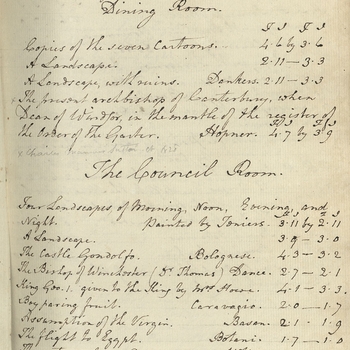 Dining Room.
F I F I
Copies of the seven Cartoons... 4.6 by 3.6
A Landscape. 2.11 – 3.3
A Landscape, with ruins. Dankers. 2.11 – 3.3
The present archbishop of Canterbury, when
Dean of Windsor, in the mantle of the register of
the Order of the Garter. Hopner. 4.7 by 3.9
The Council Room.
Four Landscapes of Morning, Noon, Evening, and
Night. Painted by Teniers. 3.11 by 2.11
A Landscape. 3.9 – 3.0
The Castle Gondolfo. Bolognese. 4.3 – 3.2
The Bishop of Winchester (Dr Thomas) Dance. 2.7 – 2.1
King Geo. 1. given to the King by Mrs 4.1 – 3.3
Boy paring fruit. Carravagio. 2.0 – 1.7
Assumption of the Virgin. Basan. 2.1 – 1.9
The flight to Egypt. Botani. 1.7 – 1.0